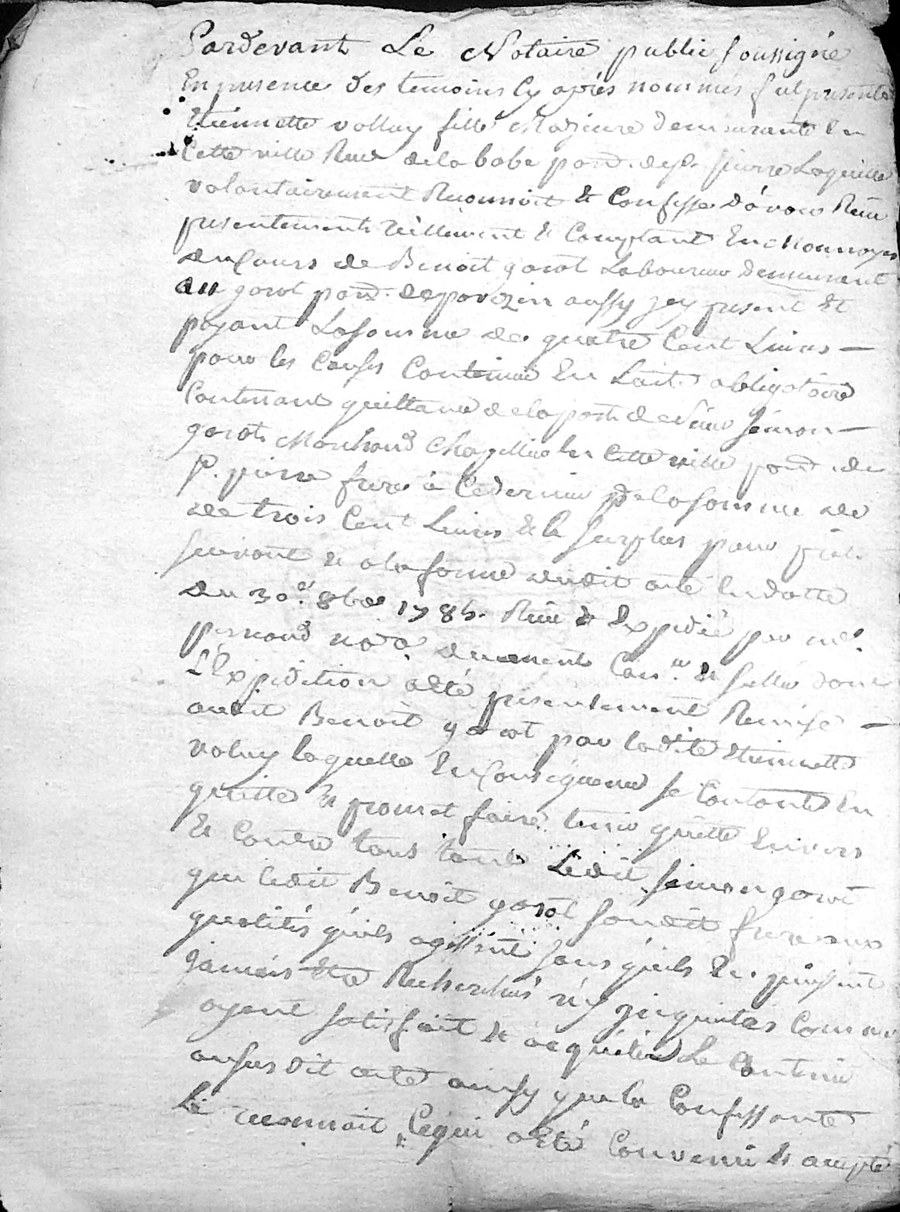 Pardevant Le Notaire public soussigné
En presence des temoins Cy après nommés fut presente
Etiennette volluy fille Majeure demeurante en
Cette ville Rue de la babe paroi. de St. pierre Laquelle
volontairement Reconnoit & Confesse d'avoir Reçu
presentement réellement & Comptant En Monnoyes
du Cours de Benoit gorot Laboureur demeurant
au gorot paroi. de pouzin aussy jcy present &
payant La somme de quatre Cent Livres —
pour les Causes Contenues En L'acte obligatoire
Contenant quittance de la part de Sieur Simon —
gorot Marchand Chapellier En Cette ville paroi. de
St. pierre frere à Ce dernier de la somme de
de trois Cent Livres & le surplus pour
suivant & a la forme dudit acte En datte
du 30e. 8bre 1785. Reçu & Expédié par me.
pernaud no.re duement Con.lé & scellé dont
L'Expedition a Eté presentement Remise —
audit Benoit gorot par ladite Etiennette
volluy laquelle En Consequence se Contente En
quitte & promet faire tenir quitte Envers
& Contre tous tant Ledit Simon gorot
que Ledit Benoit gorot sondit frere aux
qualités qu'ils agissent sans qu'ils En puissent
jamais Etre Recherchés ny jnquietés Comme
ayant satisfait & acquitté Le Contenu
au susdit acte ainsy que la Confessante
Le reconnoit, Ce qui a Eté Convenu & accepté